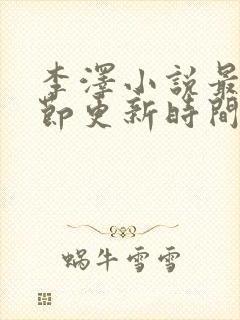 李澤小說最
節更新時間
蝸牛雪雪